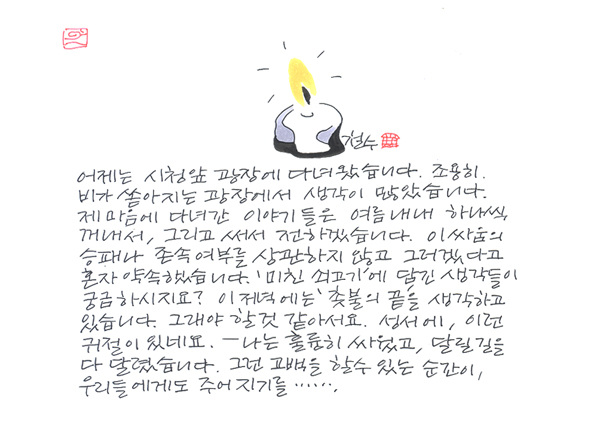 철수
어제는 시청앞 광장에 다녀왔습니다. 조용히.
비가 쏟아지는 광장에서 생각이 많았습니다.
제 마음에 다녀간 이야기들은 여름내내 하나씩
꺼내서, 그리고 써서 전하겠습니다. 이 싸움의
승패나 존속여부를 상관하지 않고 그러겠다고
혼자 약속했습니다. '미친 쇠고기'에 담긴 생각들이
궁금하시지요? 이 저녁에는 '촛불의 끝'을 생각하고
있습니다. 그래야 할것 같아서요. 성서에, 이런
귀절이 있네요. — 나는 훌륭히 싸웠고, 달릴 길을
다 달렸습니다. 그런 고백을 할수 있는 순간이,
우리들에게도 주어지기를 ······.